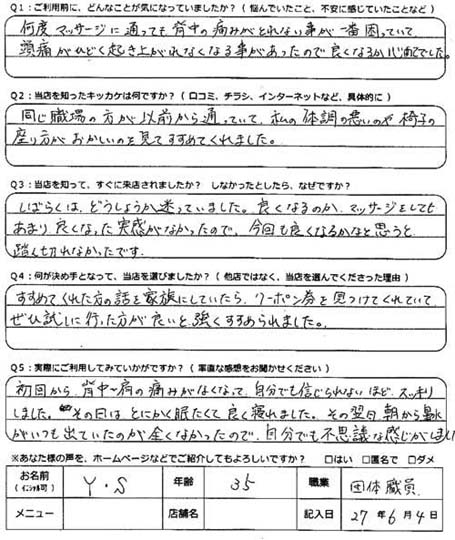 Q1:ご利用前に、どんなことが気になっていましたか?(悩んでいたこと、不安に感じていたことなど)
何度マッサージに通っても背中の痛みがとれない事が一番困っていて、
頭痛がひどく起き上がれなくなる事があったので良くなるか心配でした。
Q2:当店を知ったキッカケは何ですか?(口コミ、チラシ、インターネットなど、具体的に)
同じ職場の方が以前から通っていて、私の体調の悪いのや椅子の
座り方がおかしいのを見てすすめてくれました。
Q3:当店を知って、すぐに来店されましたか? しなかったとしたら、なぜですか?
しばらくは、どうしようか迷っていました。良くなるのか、マッサージをしても
あまり良くなった実感がなかったので、今回も良くなるかなと思うと
踏み切れなかったです.
Q4:何が決め手となって、当店を選びましたか?(他店ではなく、当店を選んでくださった理由)
すすめてくれた方の話を家族にしていたら、クーポン券を見つけてくれていて、
ぜひ試しに行った方が良いと、強くすすめられました。
Q5:実際にご利用してみていかがですか?(率直な感想をお聞かせください)
初回から、背中~肩の痛みがなくなって、自分でも信じられないほど、スッキリ
しました。その日はとにかく眠たくて良く寝れました。その翌日、朝から鼻水
がいつも出ていたのが全くなかったので、自分でも不思議な感じがしました
※あなた様の声を、ホームページなどでご紹介してもよろしいですか? □はい □匿名で □ダメ
お名前(イニシャル可) Y・S 年齢 35 職業 団体職員
メニュー 店舗名 記入日 27年6月4日